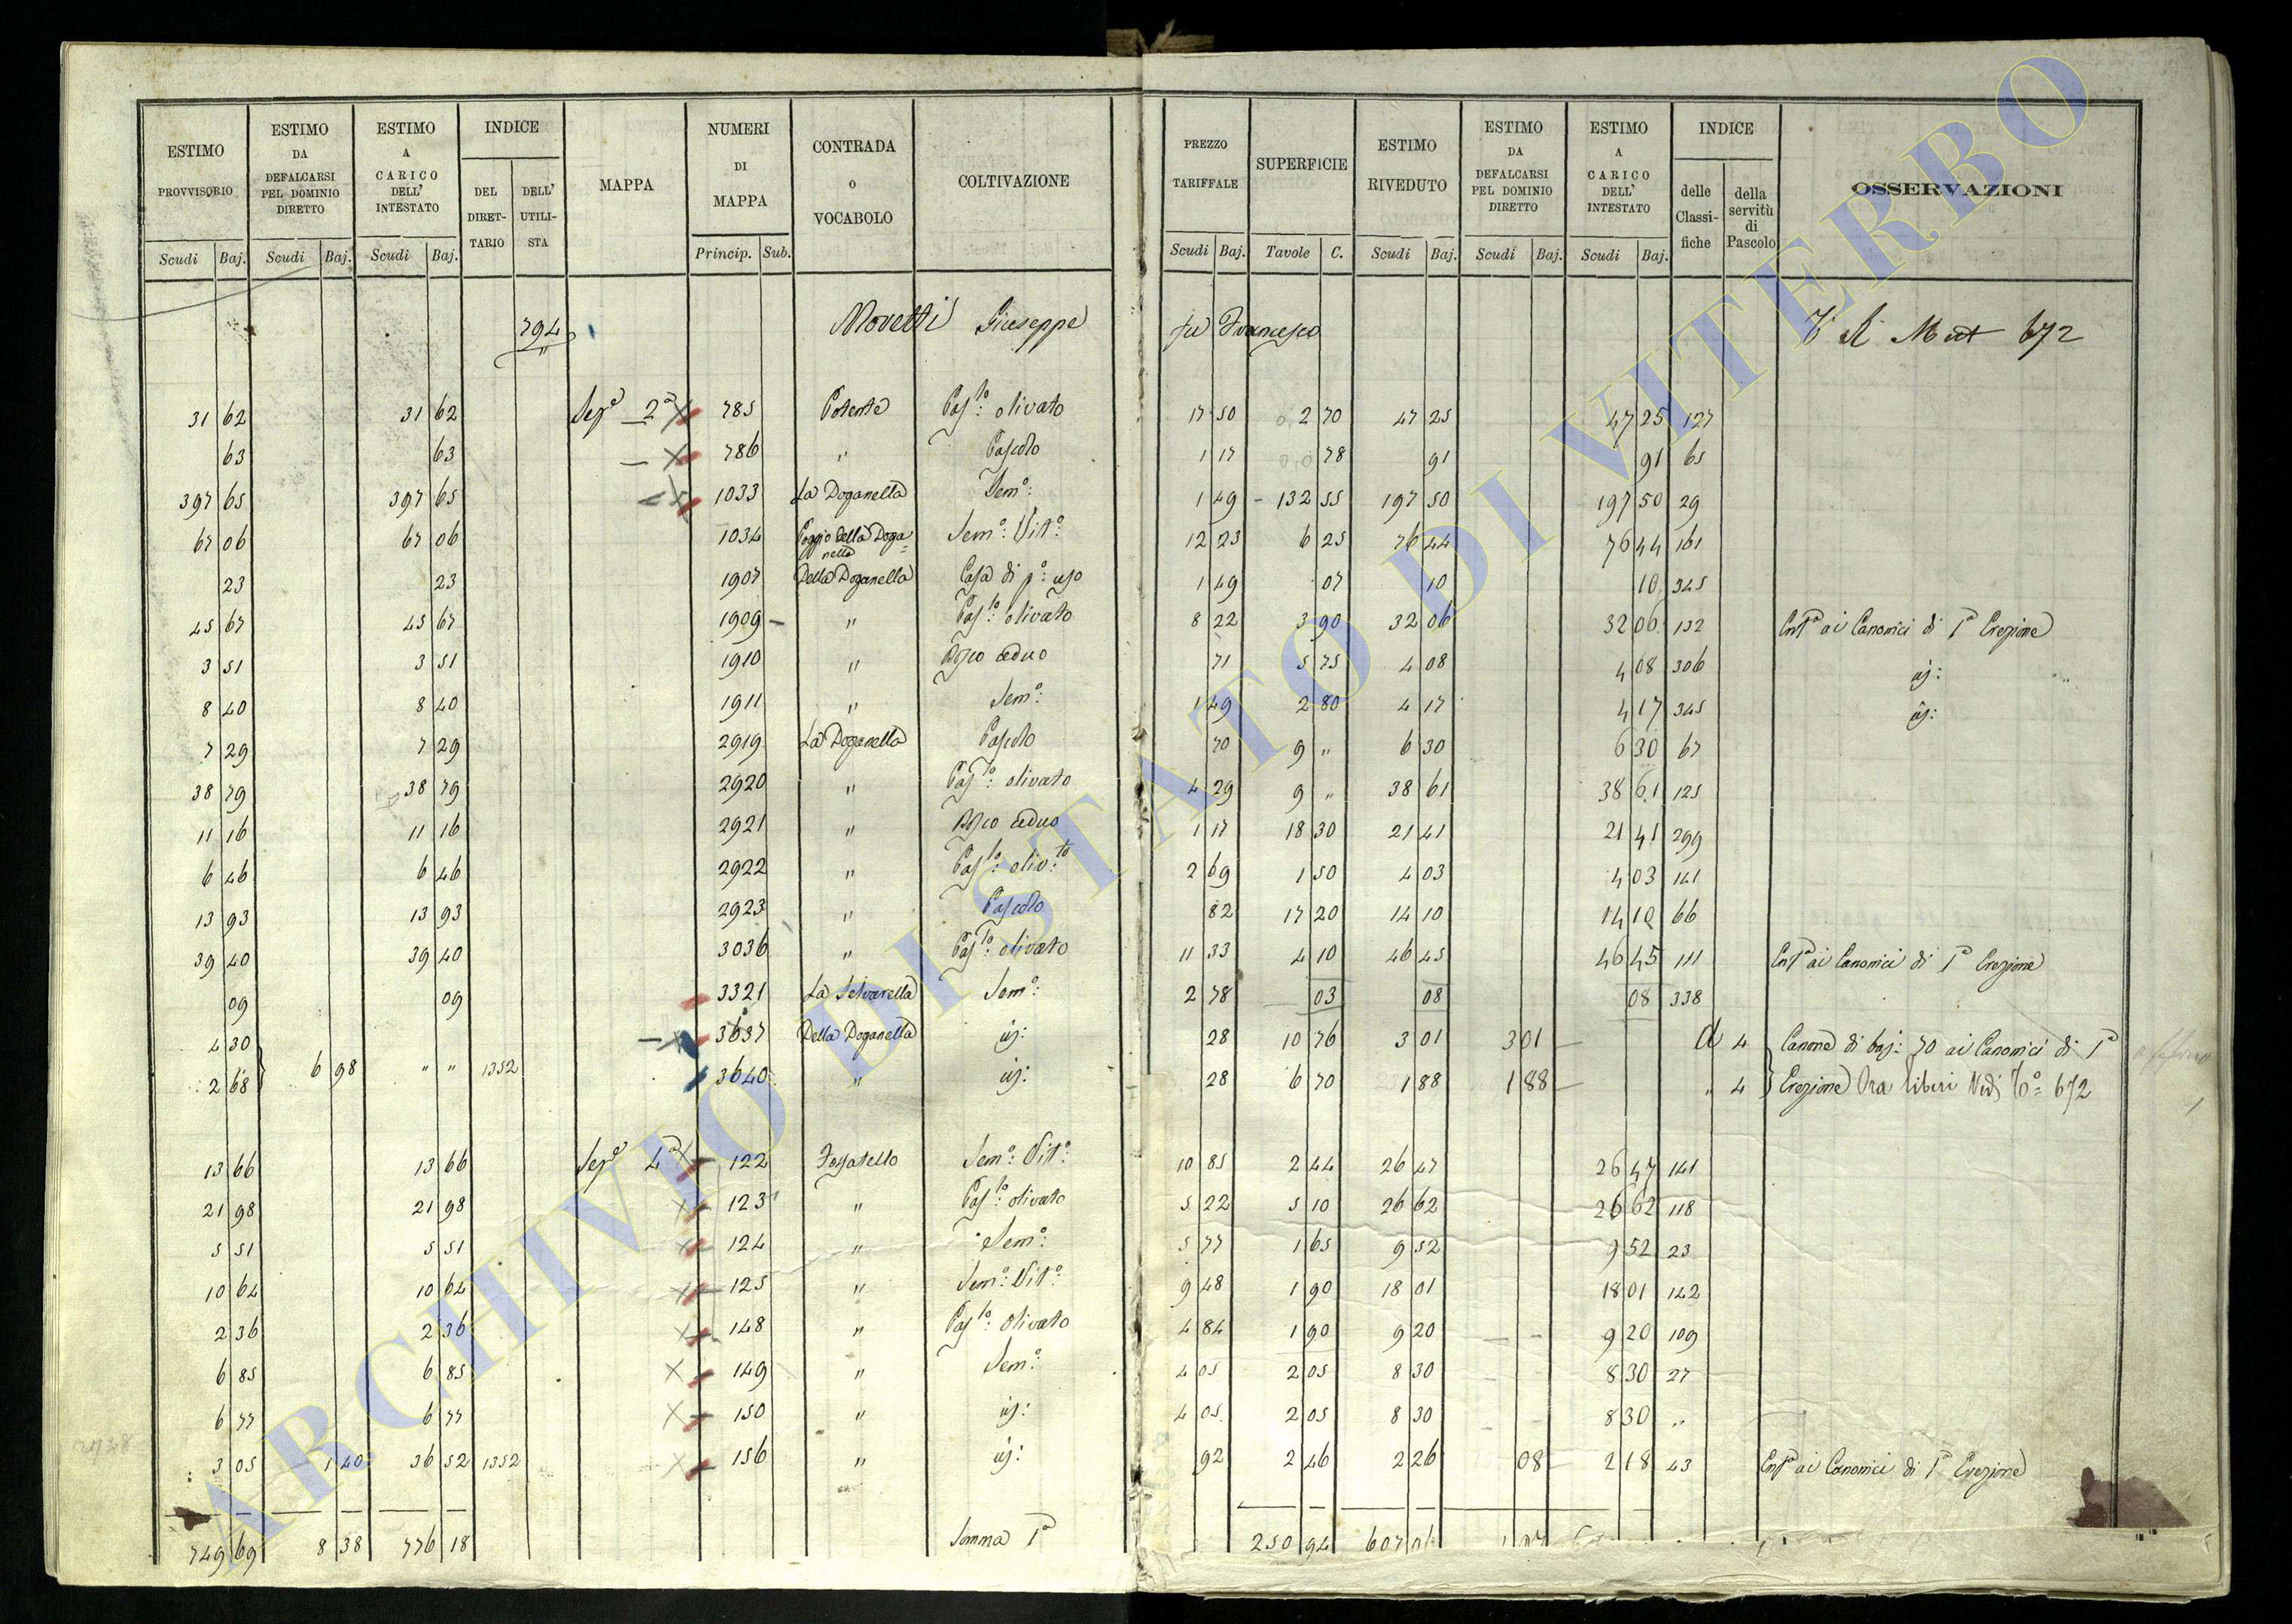 ESTIMO PROVVISORIO | ESTIMO DA DEFALCARSI PEL DOMINIO DIRETTO | ESTIMO A CARICO DELL' INTESTATO | INDICE | MAPPA | NUMERI DI MAPPA | CONTRADA o VOCABOLO | COLTIVAZIONE | PREZZO TARIFFALE | SUPERFICIE | ESTIMO RIVEDUTO | ESTIMO DA DEFALCARSI PEL DOMINIO DIRETTO | ESTIMO A CARICO DELL' INTESTATO | INDICE | OSSERVAZIONI
DEL DIRET-TARIO | DELL' UTILI-STA | delle Classi-fiche | della servitù di Pascolo
Scudi Baj. | Scudi Baj. | Scudi Baj. | Princip. Sub. | Scudi Baj. | Tavole C. | Scudi Baj. | Scudi Baj. | Scudi Baj.
794 Giuseppe fu Francesco 672
31 62 | 31 62 | Sezº 2ª | 785 | Potente | Pasto: olivato | 17 50 | 2 70 | 47 25 | 47 25 | 127
63 | 63 | 786 | " | Pascolo | 1 17 | 78 | 91 | 91 | 65
397 65 | 397 65 | 1033 | La Doganella | Semo: | 1 49 | 132 55 | 197 50 | 197 50 | 29
67 06 | 67 06 | 1034 | Poggio della Doganella | Semo: Vito: | 12 23 | 6 25 | 76 44 | 76 44 | 161
23 | 23 | 1907 | Della Doganella | Casa di po: uso | 1 49 | 07 | 10 | 10 | 345
45 67 | 45 67 | 1909 | " | Pasto: olivato | 8 22 | 3 90 | 32 06 | 32 06 | 132 | ai Canonici di Erezione
3 51 | 3 51 | 1910 | " | Bosco ceduo | 71 | 5 75 | 4 08 | 4 08 | 306 | id:
8 40 | 8 40 | 1911 | " | Semo: | 1 49 | 2 80 | 4 17 | 4 17 | 345 | id:
7 29 | 7 29 | 2919 | La Doganella | Pascolo | 70 | 9 " | 6 30 | 6 30 | 67
38 79 | 38 79 | 2920 | " | Pasto: olivato | 4 29 | 9 " | 38 61 | 38 61 | 125
11 16 | 11 16 | 2921 | " | Bosco ceduo | 1 17 | 18 30 | 21 41 | 21 41 | 299
6 46 | 6 46 | 2922 | " | Pasto: olivto: | 2 69 | 1 50 | 4 03 | 4 03 | 141
13 93 | 13 93 | 2923 | " | Pascolo | 82 | 17 20 | 14 10 | 14 10 | 66
39 40 | 39 40 | 3036 | " | Pasto: olivato | 11 33 | 4 10 | 46 45 | 46 45 | 111 | ai Canonici di Erezione
09 | 09 | 3321 | La Selvarella | Semo: | 2 78 | 03 | 08 | 08 | 338
4 30 | 3637 | Della Doganella | id: | 28 | 10 76 | 3 01 | 3 01 | 4 | Canone di baj: 70 ai Canonici di
2 68 | 6 98 | " " | 1352 | 3640 | " | id: | 28 | 6 70 | 1 88 | 1 88 | " 4 | Erezione Ora liberi 672
13 66 | 13 66 | Sezº 4ª | 122 | Fossatello | Semo: Vito: | 10 85 | 2 44 | 26 47 | 26 47 | 141
21 98 | 21 98 | 123 | " | Pasto: olivato | 5 22 | 5 10 | 26 62 | 26 62 | 118
5 51 | 5 51 | 124 | " | Semo: | 5 77 | 1 65 | 9 52 | 9 52 | 23
10 64 | 10 64 | 125 | " | Semo: Vito: | 9 48 | 1 90 | 18 01 | 18 01 | 142
2 36 | 2 36 | 148 | " | Pasto: olivato | 4 84 | 1 90 | 9 20 | 9 20 | 109
6 85 | 6 85 | 149 | " | Semo: | 4 05 | 2 05 | 8 30 | 8 30 | 27
6 77 | 6 77 | 150 | " | id: | 4 05 | 2 05 | 8 30 | 8 30 | "
3 05 | 1 40 | 36 52 | 1352 | 156 | " | id: | 92 | 2 46 | 2 26 | 08 | 2 18 | 43 | ai Canonici di Erezione
749 69 | 8 38 | 776 18 | Somma 1ª | 250 94
ARCHIVIO DI STATO DI VITERBO